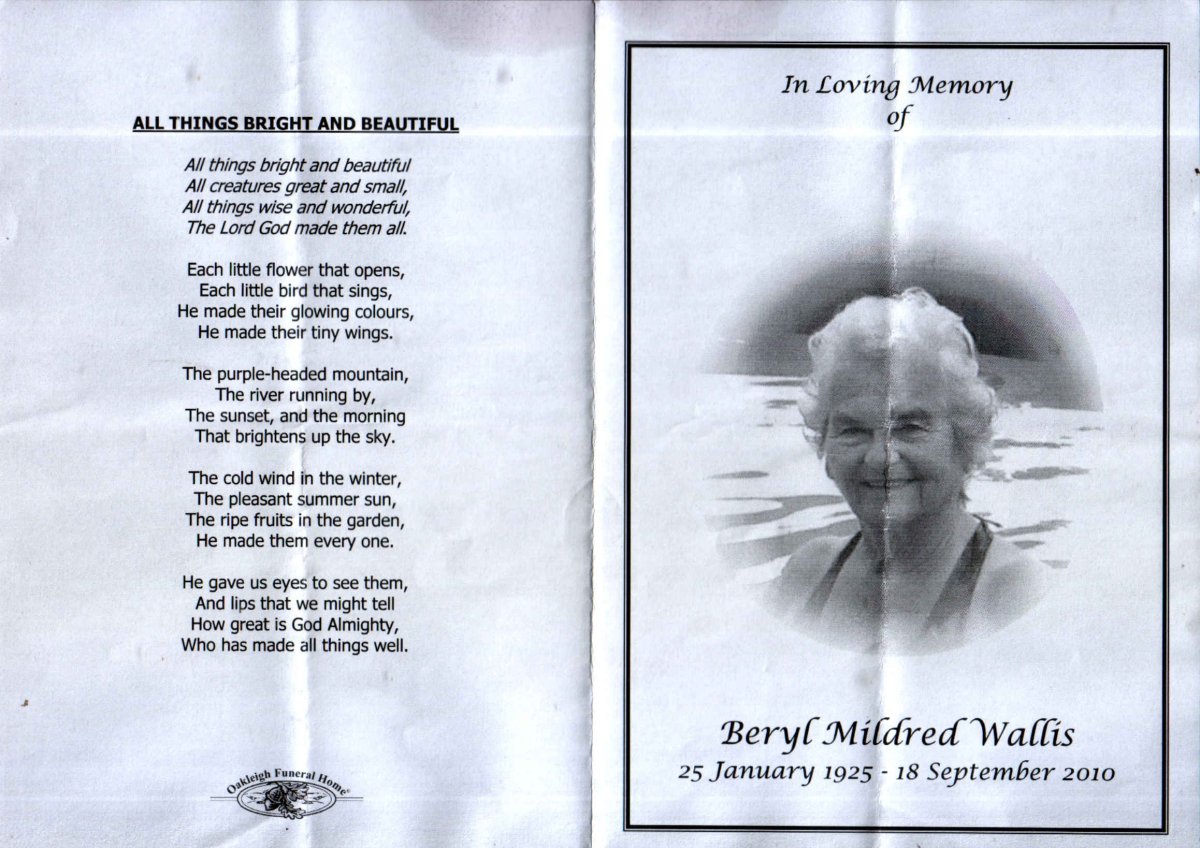 ALL THINGS BRIGHT AND BEAUTIFUL
All things bright and beautiful
All creatures great and small,
All things wise and wonderful,
The Lord God made them all.
Each little flower that opens,
Each little bird that sings,
He made their glowing colours,
He made their tiny wings.
The purple-headed mountain,
The river running by,
The sunset, and the morning
That brightens up the sky.
The cold wind in the winter,
The pleasant summer sun,
The ripe fruits in the garden,
He made them every one.
He gave us eyes to see them,
And lips that we might tell
How great is God Almighty,
Who has made all things well.
Oakleigh Funeral Home
In Loving Memory
of
Beryl Mildred Wallis
25 January 1925 - 18 September 2010